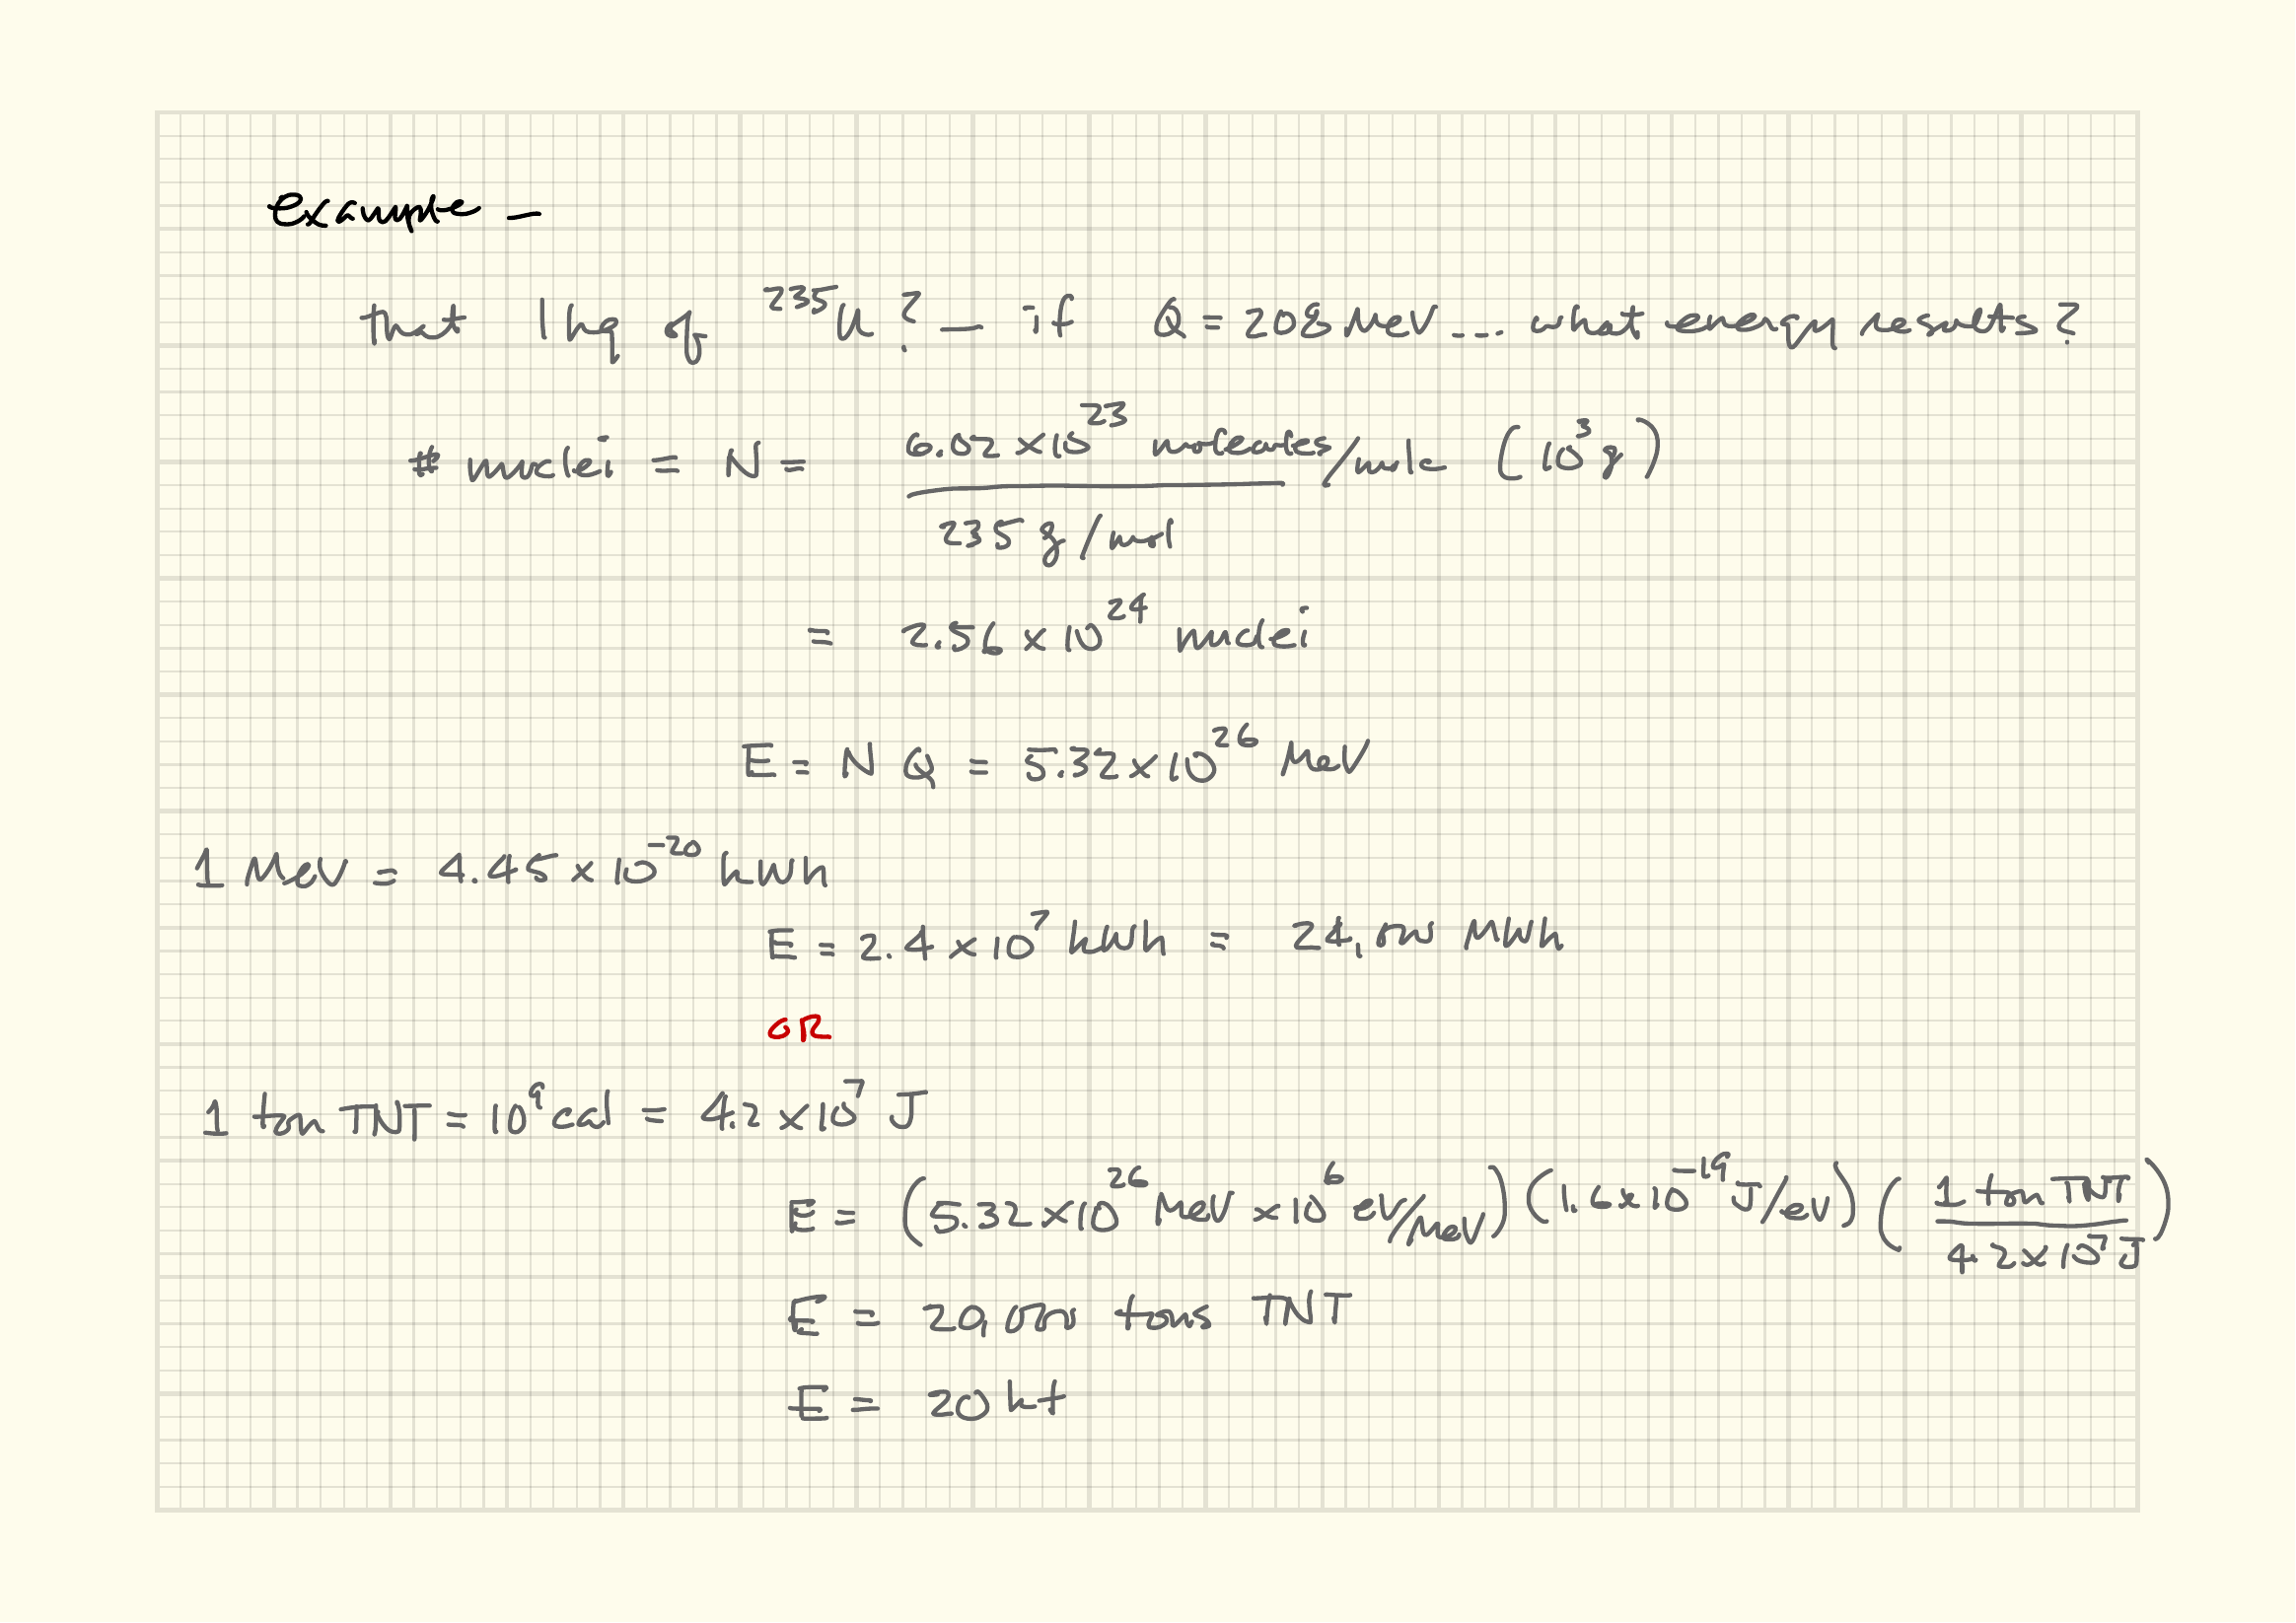 example —
that 1 kg of ²³⁵U? — if Q = 208 MeV ... what energy results?
# nuclei = N = 6.02 × 10²³ molecules/mole (10³ g)
235 g/mol
= 2.56 × 10²⁴ nuclei
E = N Q = 5.32 × 10²⁶ MeV
1 MeV = 4.45 × 10⁻²⁰ kWh
E = 2.4 × 10⁷ kWh = 24,000 MWh
OR
1 ton TNT = 10⁹ cal = 4.2 × 10⁷ J
E = (5.32 × 10²⁶ MeV × 10⁶ eV/MeV) (1.6 × 10⁻¹⁹ J/eV) (1 ton TNT / 4.2 × 10⁷ J)
E = 20,000 tons TNT
E = 20 kt